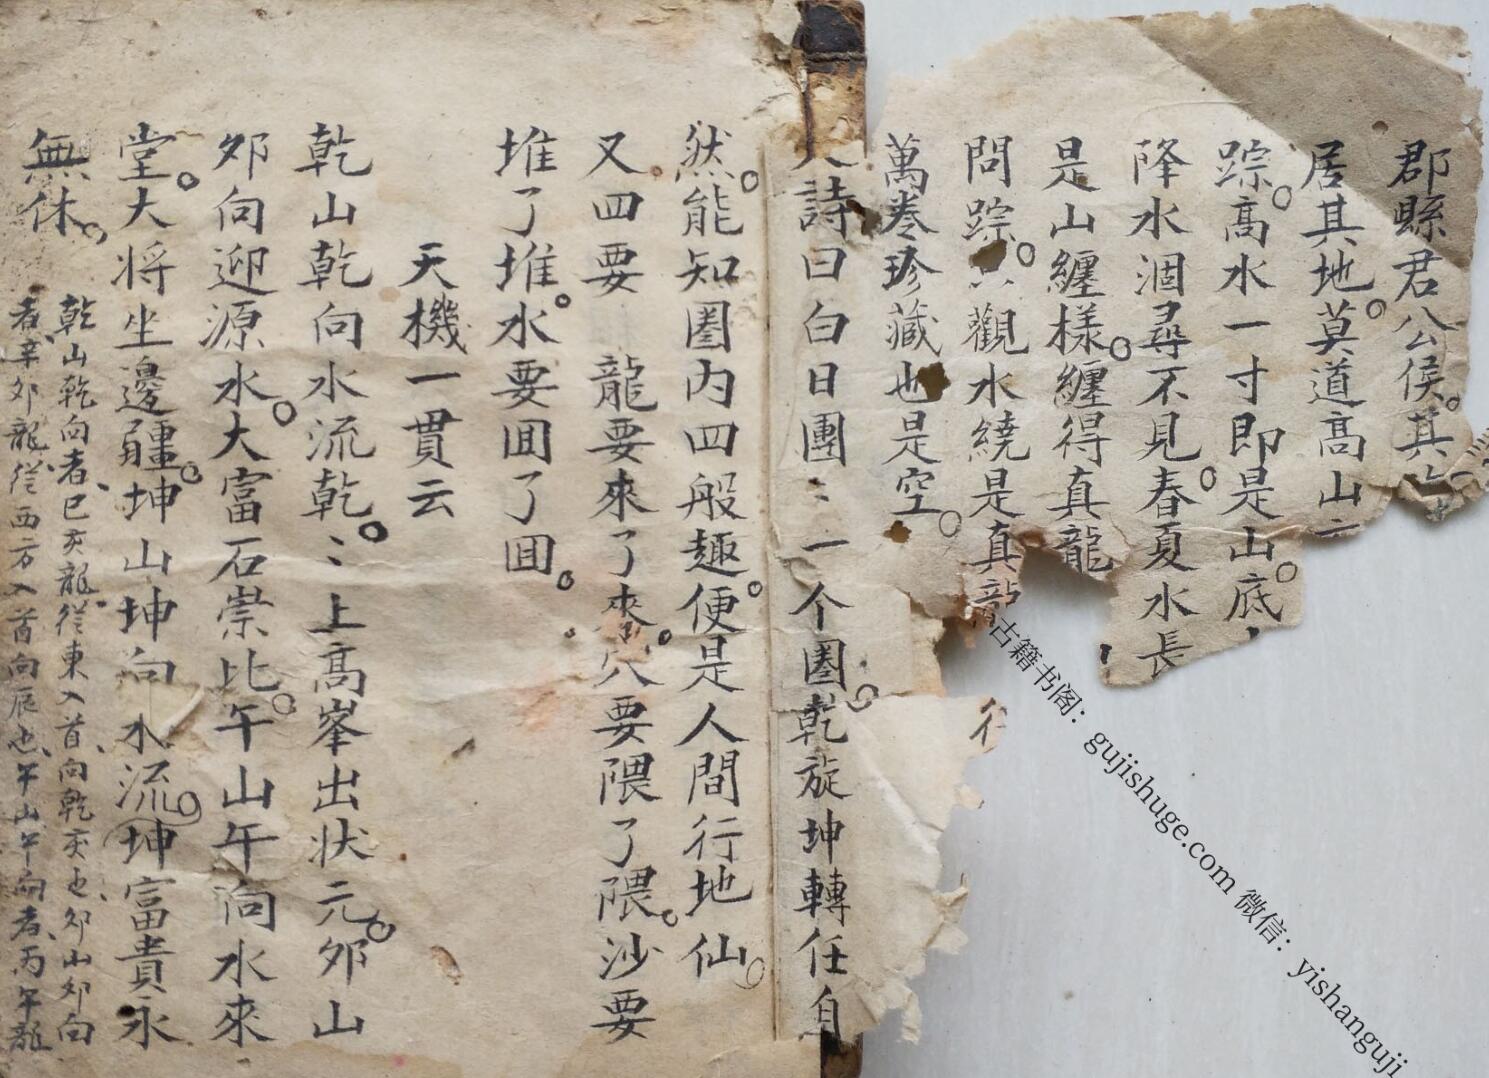 郡縣君公侯。其
居其地。莫道高山
踪。高水一寸即是山。底
降水涸尋不見。春夏水長
是山纏樣。纏得真龍
問踪。觀水繞是真龍
行
萬卷珍藏也是空。
詩曰白日團〻一个圏。乾旋坤轉任自
然。能知圏内四般趣。便是人間行地仙。
又四要 龍要來了來。穴要隈了隈。沙要
堆了堆。水要囬了囬。
天機一貫云
乾山乾向水流乾。〻上高峯出状元。夘山
夘向迎源水。大富石崇比。午山午向水來
堂。大将坐邊疆。坤山坤向水流。坤富貴永
無休。
乾山乾向者、巳亥龍。從東入首、向乾亥也、夘山夘向
者、辛夘龍、從西方入首向辰也、午山午向者、丙午龍
古籍书阁：gujishuge.com 微信：yishanguji